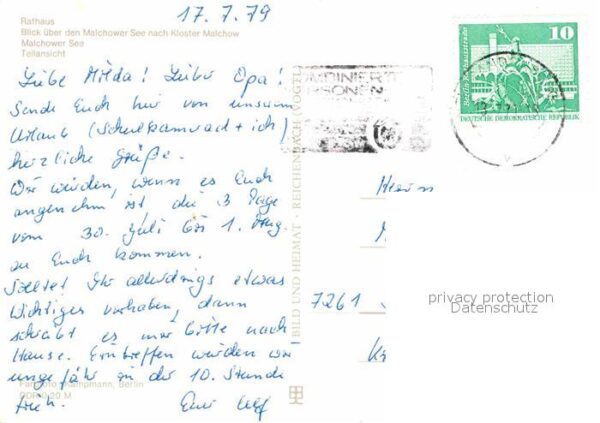 17.7.79
Rathaus
Blick über den Malchower See nach Kloster Malchow
Malchower See
Teilansicht
Liebe Milda! Lieber Opa!
Sende Euch hier von unserem
Urlaub (Schulkamrad + ich)
herzliche Grüße.
Wir würden, wenn es Euch
angenehm ist die 3 Tage
vom 30. Juli bis 1. Aug.
zu Euch kommen.
Solltet Ihr allerdings etwas
Wichtiges vorhaben, dann
schreibt es mir bitte nach
Hause. Eintreffen würden wir
ungefähr in der 10. Stunde
früh. Euer Ulf
Farbfoto: Kampmann, Berlin
DDR 0,20 M
BILD UND HEIMAT REICHENBACH (VOGTL
10
Berlin, Rathausstraße
DEUTSCHE DEMOKRATISCHE REPUBLIK
Herrn
7261
privacy protection
Datenschutz